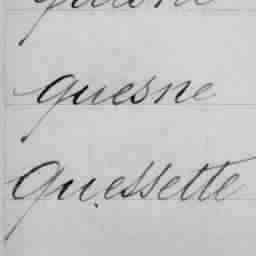 quesne
Quessette